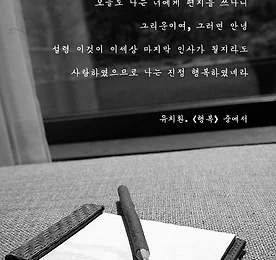 오늘도 나는 너에게 편지를 쓰나니
그리운이여, 그러면 안녕
설령 이것이 이세상 마지막 인사가 될지라도
사랑하였으므로 나는 진정 행복하였네라
유치환. 《행복》 중에서